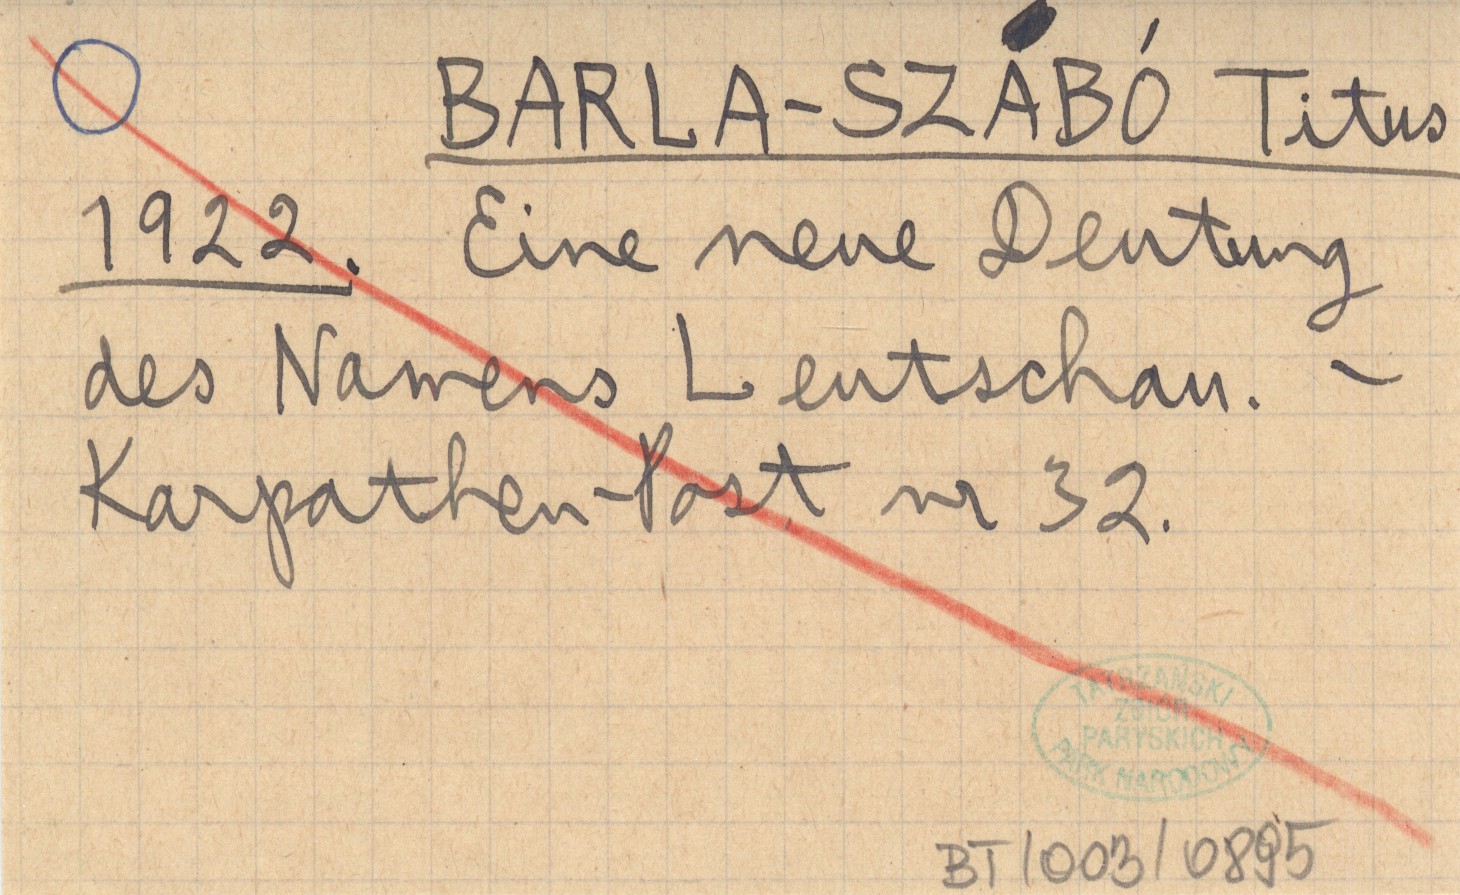 BARLA-SZÁBÓ Titus
1922. Eine neue Deutung
des Namens Leutschau. -
Karpathen-Post nr 32.
TATRZAŃSKI
ZBIÓR
PARYSKICH
PARK NARODOWY
BT/003/0895